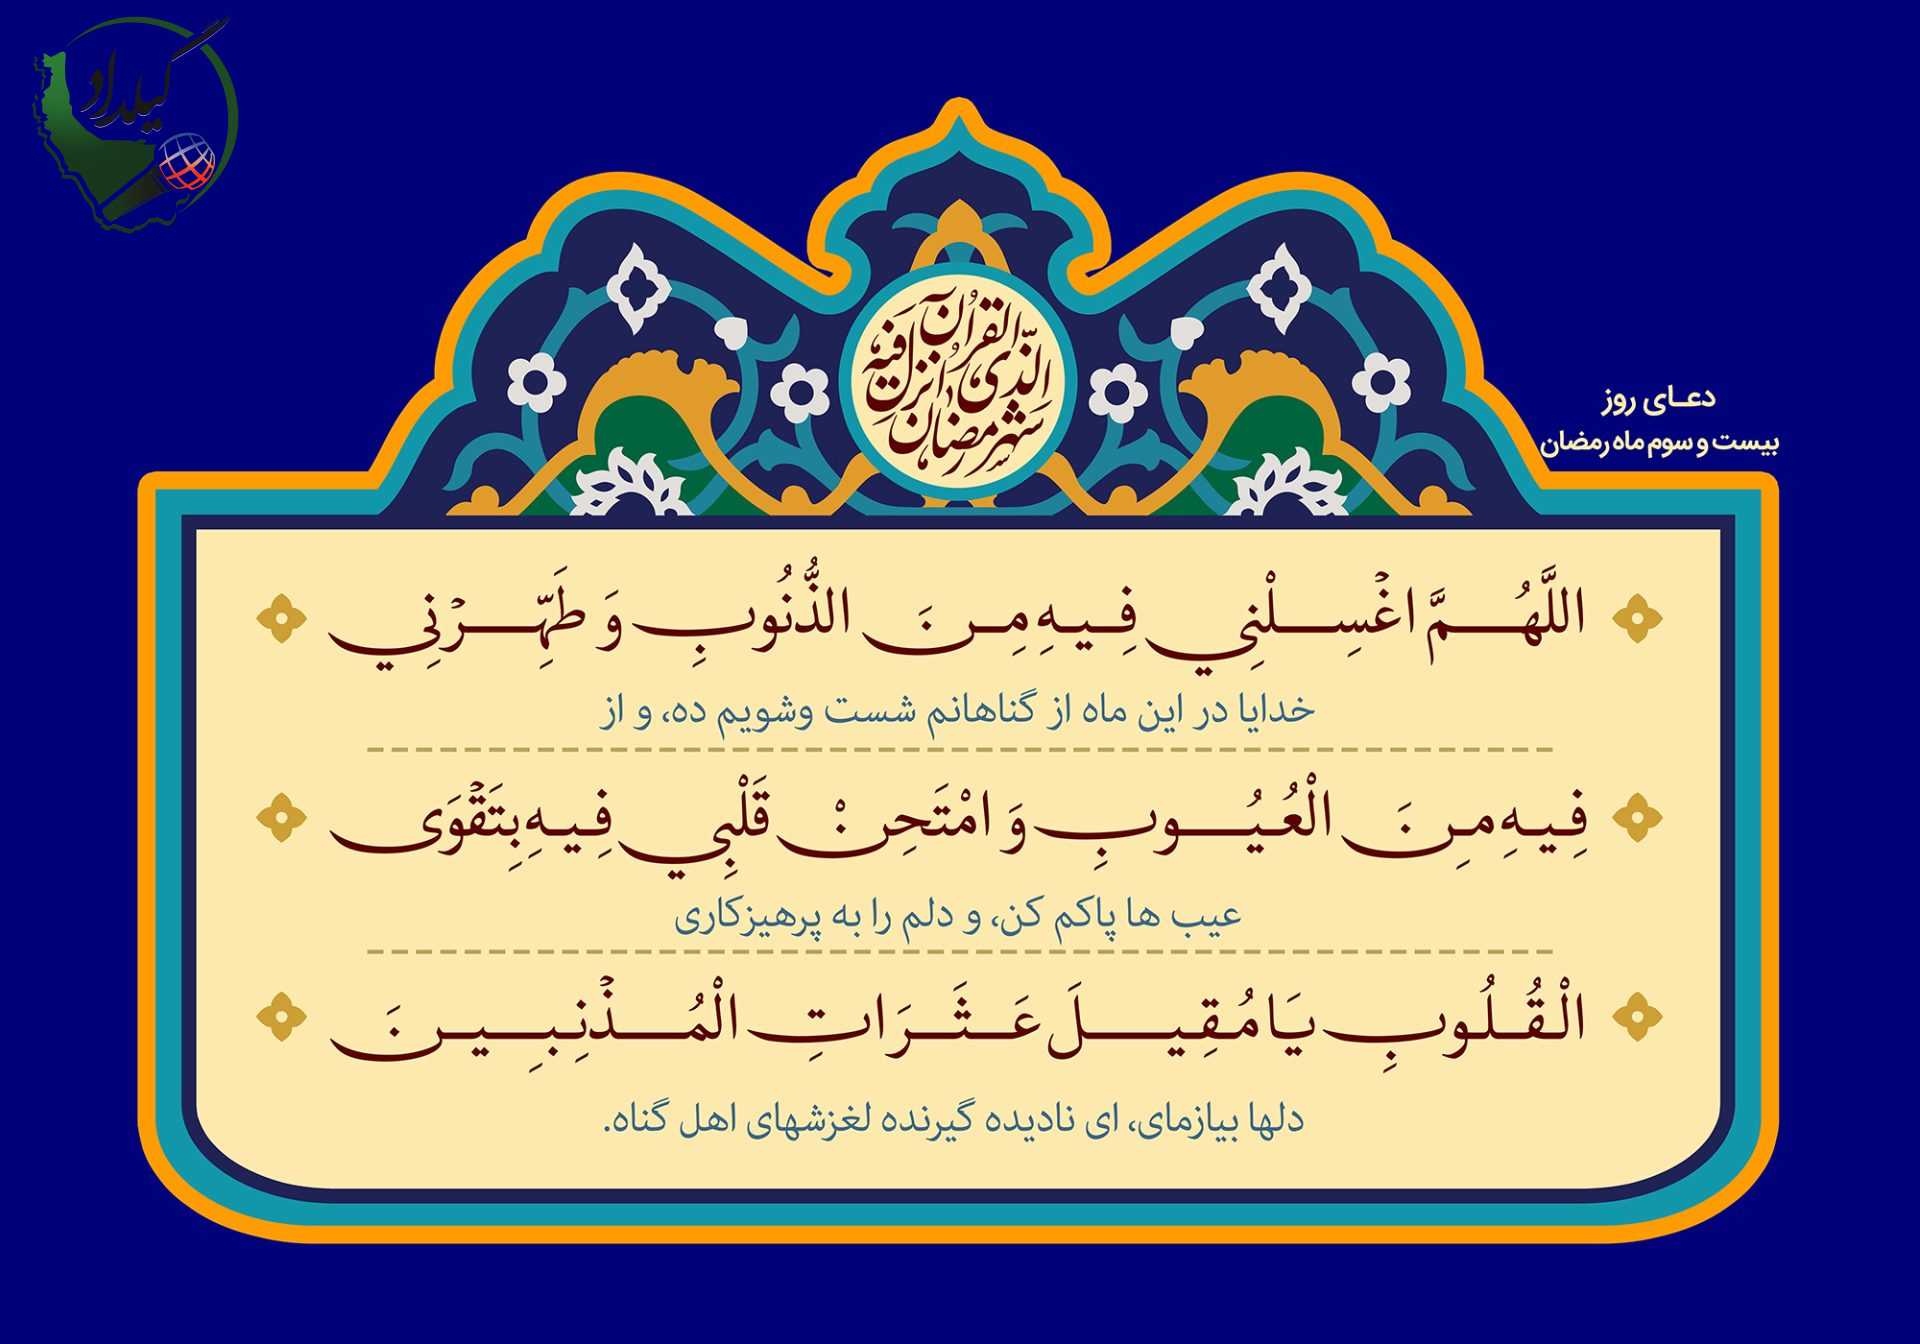 گیلداد
شهر رمضان الذی انزل فیه القرآن
دعای روز
بیست و سوم ماه رمضان
اللَّهُمَّ اغْسِلْنِي فِيهِ مِنَ الذُّنُوبِ وَ طَهِّرْنِي
خدایا در این ماه از گناهانم شست وشویم ده، و از
فِيهِ مِنَ الْعُيُوبِ وَ امْتَحِنْ قَلْبِي فِيهِ بِتَقْوَى
عیب ها پاکم کن، و دلم را به پرهیزکاری
الْقُلُوبِ يَا مُقِيلَ عَثَرَاتِ الْمُذْنِبِينَ
دلها بیازمای، ای نادیده گیرنده لغزشهای اهل گناه.